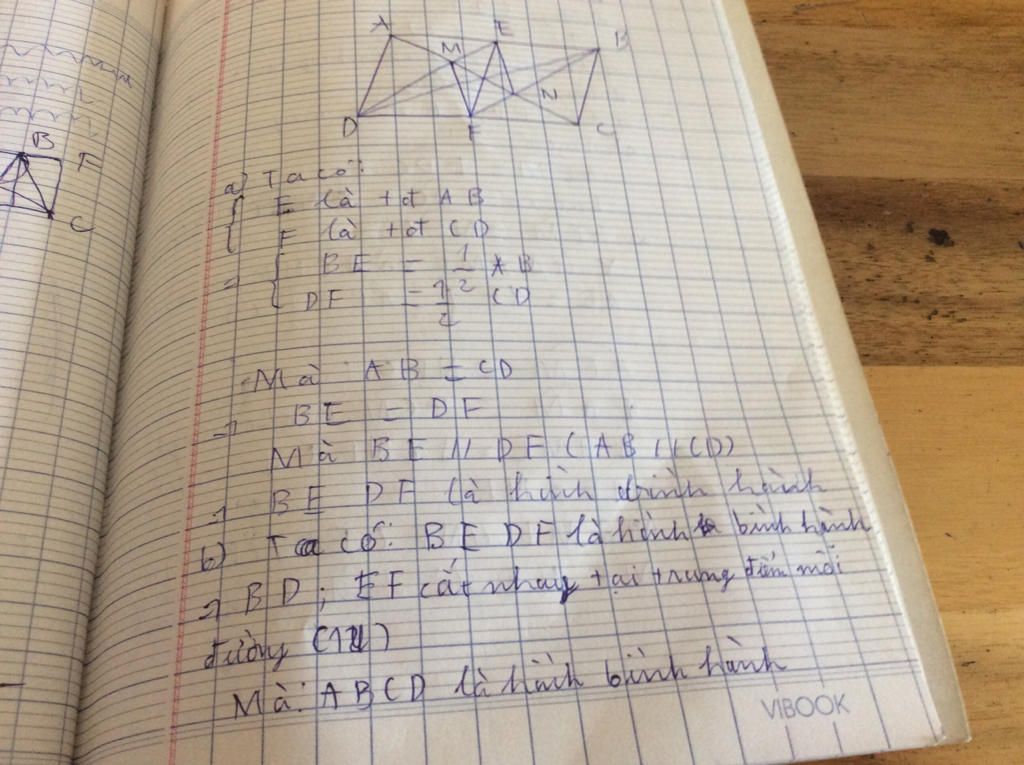 A
E
B
M
N
D
F
C
B
F
C
a) Ta có:
E là tđ AB
F là tđ CD
BE = 1/2 AB
DF = 1/2 CD
Mà AB = CD
=> BE = DF
Mà BE // DF (AB // CD)
=> BE DF là hình bình hành
b) Ta có: BE DF là hình bình hành
=> BD; EF cắt nhau tại trung điểm mỗi
đường (1)
Mà: ABCD là hình bình hành
VIBOOK